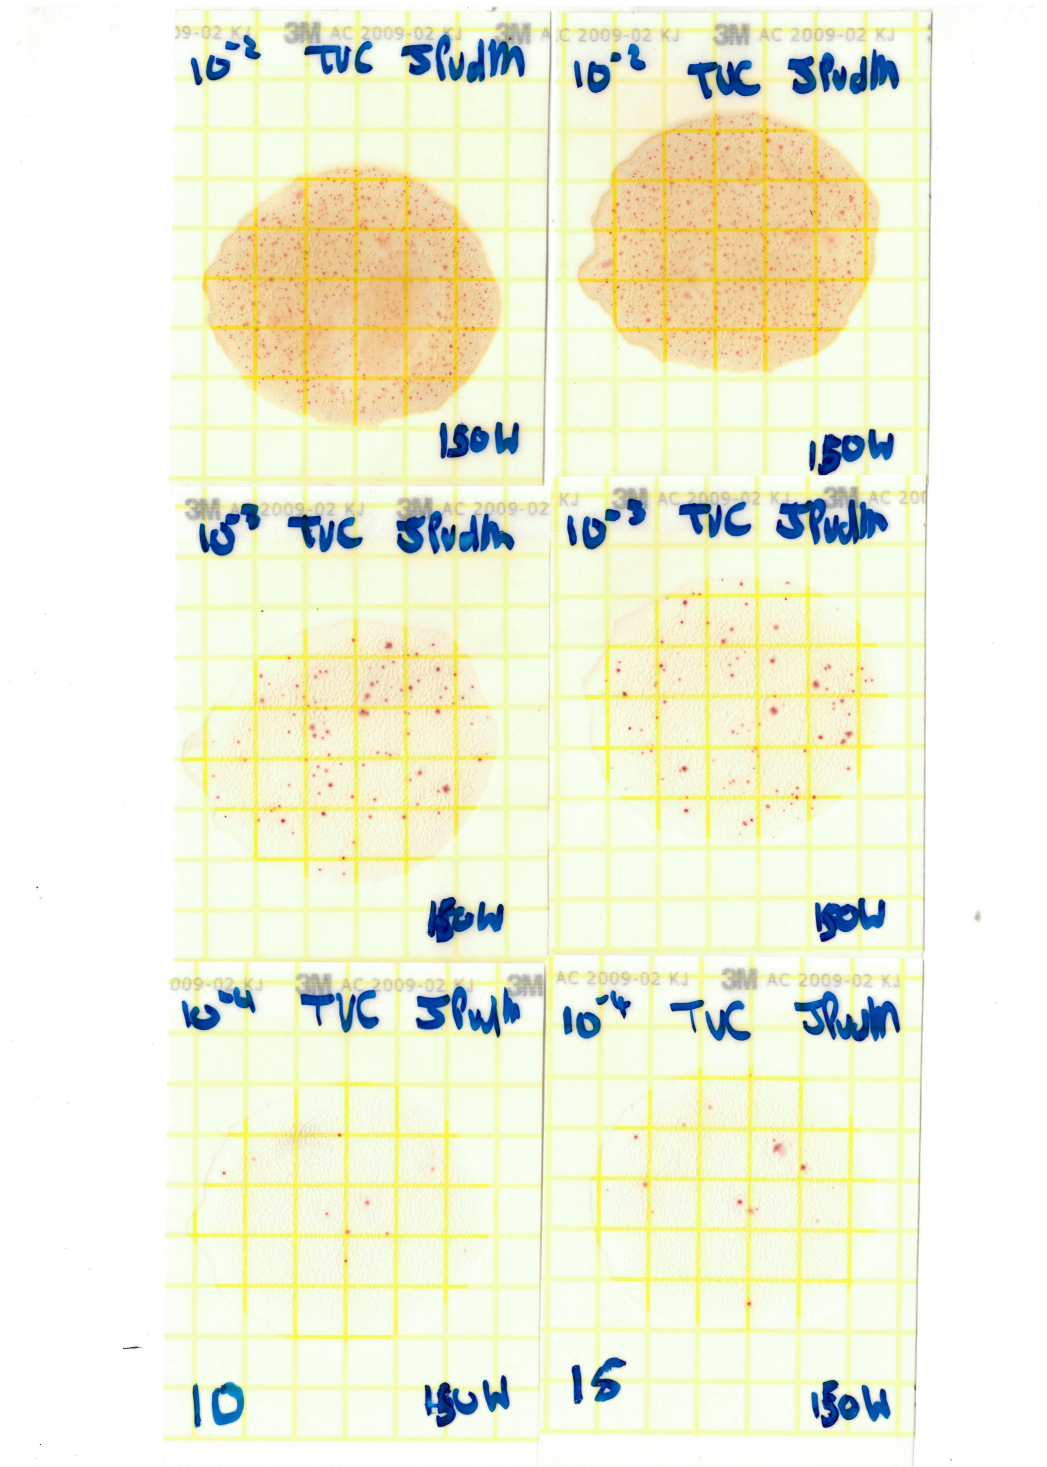 09-02 KJ 3M AC 2009-02 KJ 3M A
10⁻² TVC JPudm
150W
C 2009-02 KJ 3M AC 2009-02 KJ
10⁻² TVC JPudm
150W
3M AC 2009-02 KJ 3M AC 2009-02
10⁻³ TVC JPudm
150W
KJ 3M AC 2009-02 KJ 3M AC 200
10⁻³ TVC JPudm
150W
009-02 KJ 3M AC 2009-02 KJ 3M
10⁻⁴ TVC JPudm
10 150W
AC 2009-02 KJ 3M AC 2009-02 KJ
10⁻⁴ TVC JPudm
15 150W